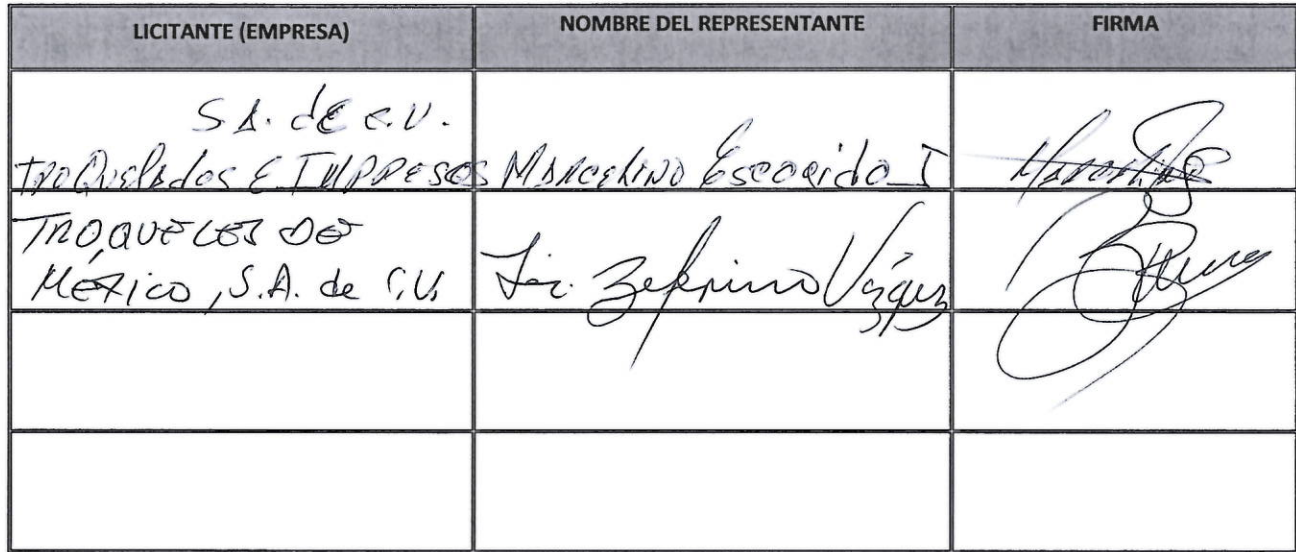 LICITANTE (EMPRESA) NOMBRE DEL REPRESENTANTE FIRMA
S.A. de C.V.
Troquelados E IMPRESOS Marcelino Escogido I
TROQUELES DE
México, S.A. de C.V. Lic. Zeferino Vázquez